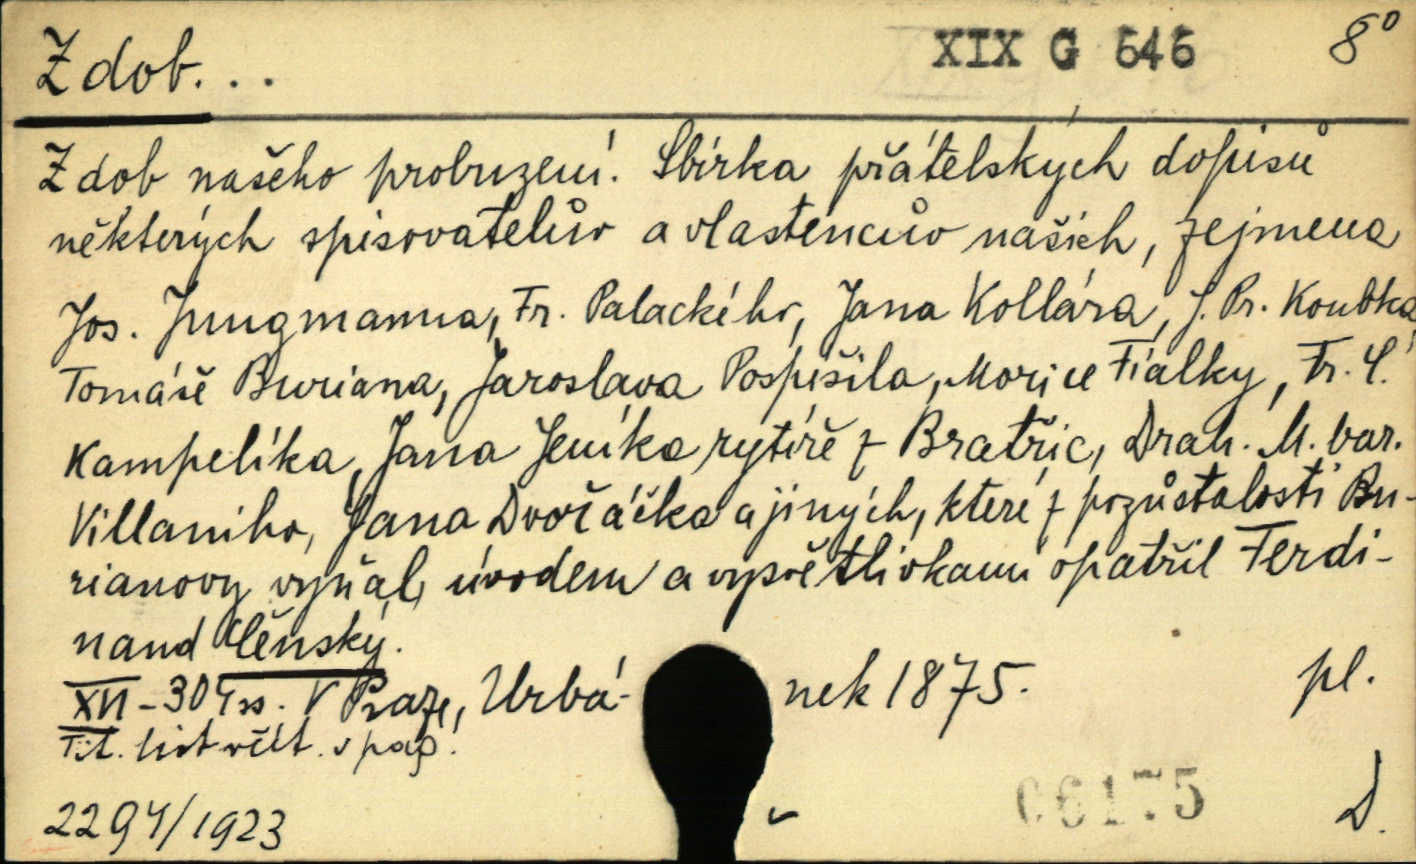 Z dob... XIX G 546 8°
Z dob našeho probuzení. Sbírka přátelských dopisů
některých spisovatelův a vlastencův našich, zejmena
Jos. Jungmanna, Fr. Palackého, Jana Kollára, J. Pr. Koubka,
Tomáše Buriana, Jaroslava Pospíšila, Morice Fialky, Fr. C.
Kampelíka, Jana Jeníka rytíře z Bratřic, Drah. M. bar.
Villaniho, Jana Dvořáčka a jiných, které z pozůstalosti Bu-
rianovy vyňal, úvodem a vysvětlivkami opatřil Ferdi-
nand Čenský.
XVI - 304 ss. V Praze, Urbá- nek 1875. pl.
Tit. list včít. v pag.
2294/1923 06175 D.